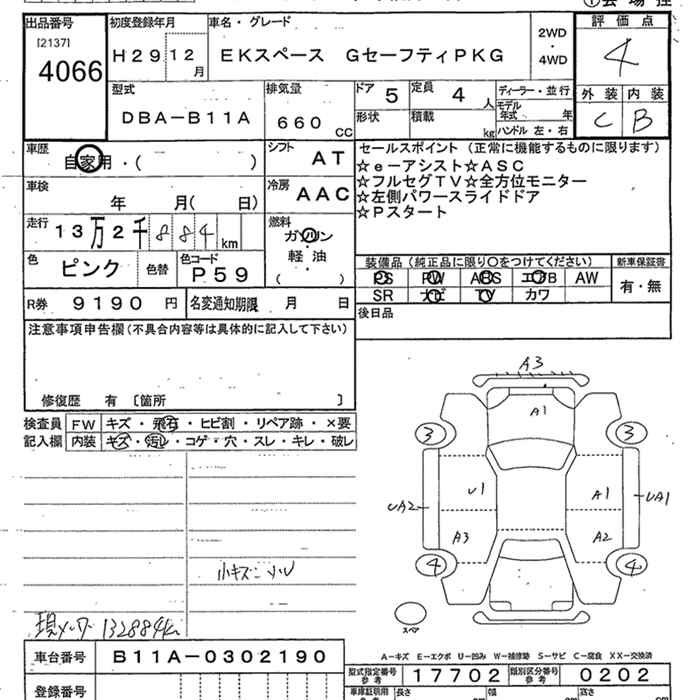 出品番号 初度登録年月 車名・グレード 評価点
[2137] 4066 H29 12月 EKスペース GセーフティPKG 2WD・4WD 4
型式 排気量 ドア 5 定員 4人 ディーラー・並行 外装 内装
DBA-B11A 660cc 形状 積載 kg モデル年式 年 C B
ハンドル 左・右
車歴 シフト セールスポイント（正常に機能するものに限ります）
自家用・（ ） AT ☆e-アシスト☆ASC
☆フルセグTV☆全方位モニター
車検 年 月（ 日） 冷房 AAC ☆左側パワースライドドア
☆Pスタート
走行 13万2千884km 燃料 ガソリン・軽油
（ ）
色 ピンク 色替 色コード P59 装備品（純正品に限り○をつけてください） 新車保証書
PS PW ABS エアB AW 有・無
R券 9190円 名変通知期限 月 日 SR ナビ TV カワ
注意事項申告欄（不具合内容等は具体的に記入して下さい） 後日品
修復歴 有〔箇所 〕
検査員 FW キズ・飛石・ヒビ割・リペア跡・×要
記入欄 内装 キズ・汚レ・コゲ・穴・スレ・キレ・破レ
A3
A1
3 3
U1 A1
UA2 UA1
A3 A2
4 4
スペア
小キズ
現メーター 132884km
A―キズ E―エクボ U―凹み W―補修跡 S―サビ C―腐食 XX―交換済
車台番号 B11A-0302190 型式指定番号 参考 17702 類別区分番号 参考 0202
登録番号 車庫証明用 参考 長さ cm 幅 cm 高さ cm